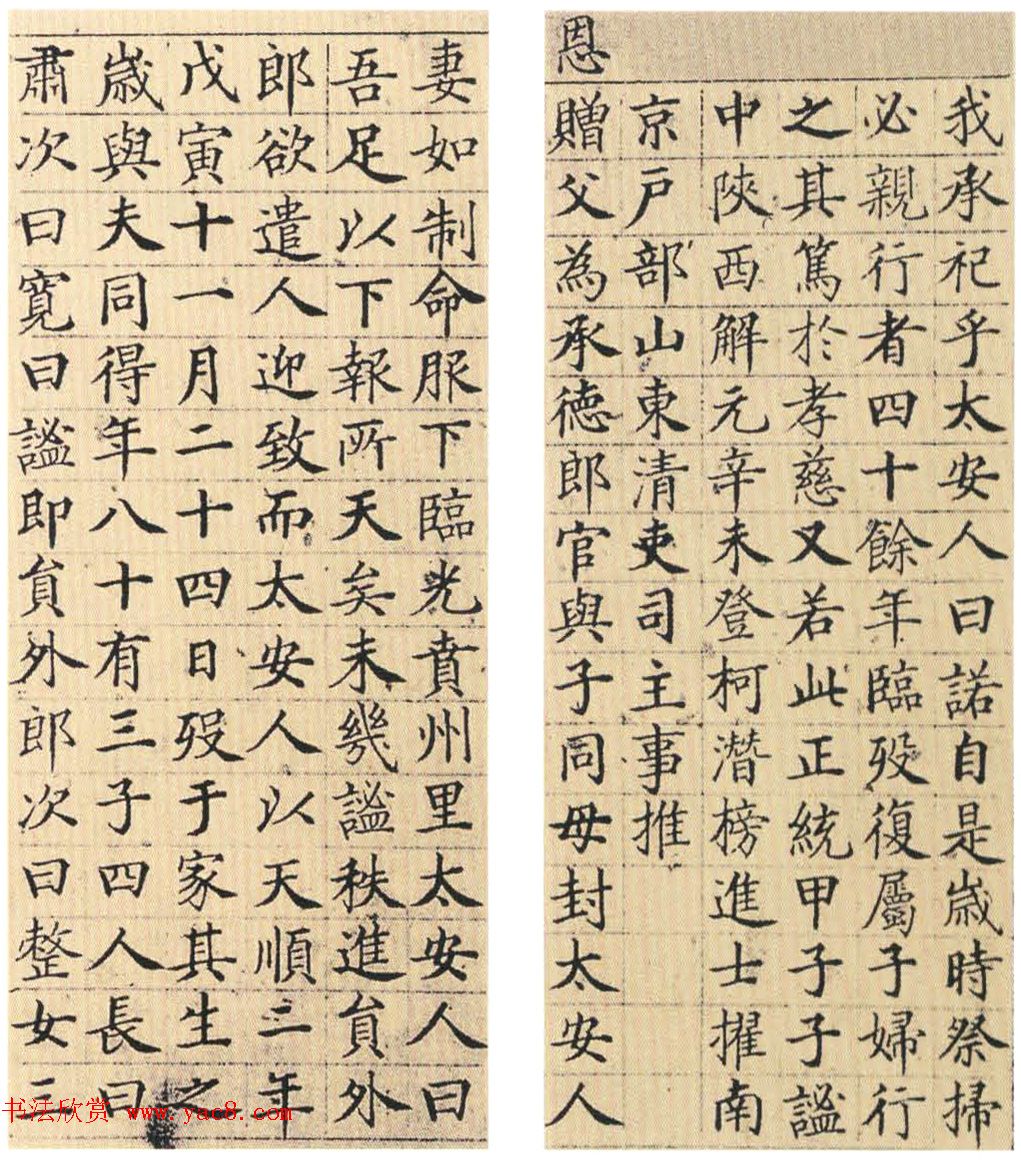 我承祀乎太安人曰諾自是歲時祭掃
必親行者四十餘年臨歿復屬子婦行
之其篤於孝慈又若此正統甲子子謐
中陝西解元辛未登柯潛榜進士擢南
京戶部山東清吏司主事推
恩贈父為承德郎官與子同母封太安人
妻如制命服下臨光賁州里太安人曰
吾足以下報所天矣未幾謐秩進員外
郎欲遣人迎致而太安人以天順二年
戊寅十一月二十四日歿于家其生之
歲與夫同得年八十有三子四人長曰
肅次曰寬曰謐即員外郎次曰整女二
书法欣赏 www.yac8.com